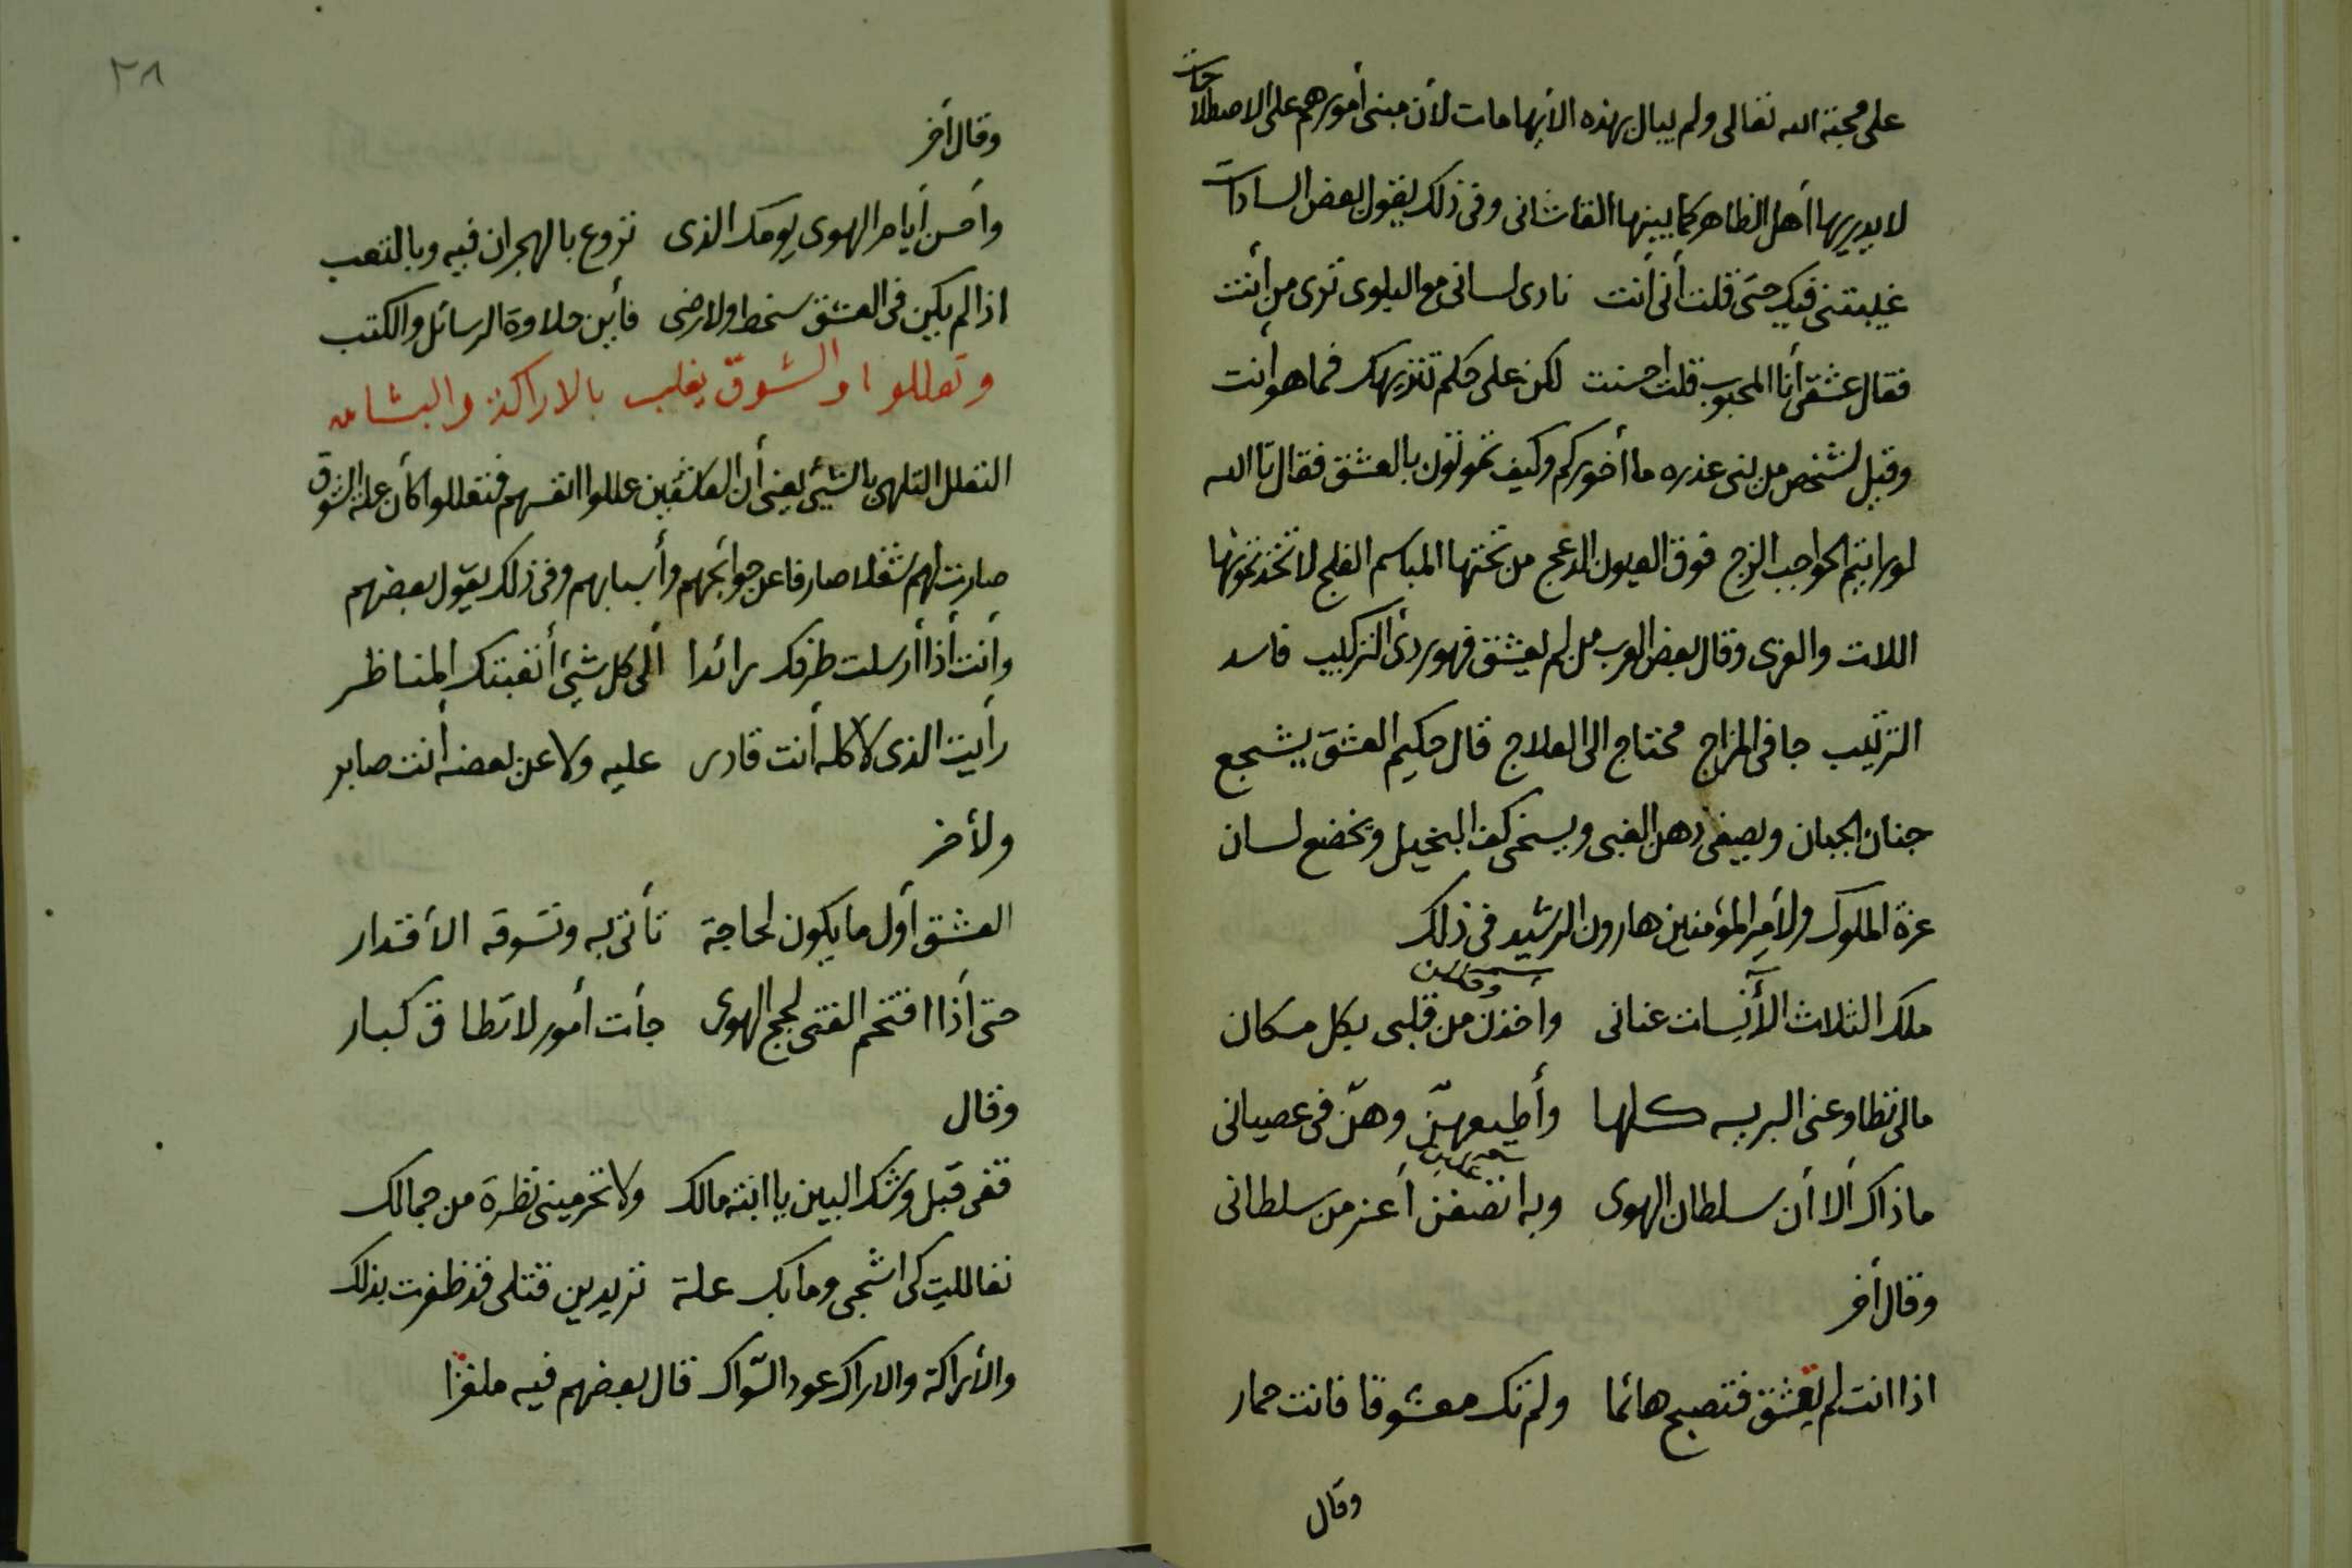 على محبة الله تعالى ولم يبال بهذه الأيهامات لأن مبنى أمورهم على الاصطلاحات
لا يدريها أهل الظاهر كما يبينها القاشانى وفى ذلك يقول بعض السادات
غيبتنى فيك حتى قلت أنى أنت نادى لسانى مع البلوى ترى من أنت
فقال عشقى أنا المحبوب قلت احسنت لكن على حكم تنزيهك فما هو أنت
وقيل لشخص من بنى عذره ما أخوركم وكيف تموتون بالعشق فقال تا الله
لو رايتم الحواجب الزج فوق العيون الدعج من تحتها المباسم الفلج لاتخذتموها
اللات والعزى وقال بعض العرب من لم يعشق فهو ردئ التركيب فاسد
الترتيب جافى المزاج محتاج الى العلاج قال حكيم العشق يشجع
جنان الجبان ويصفى ذهن الغبى ويسخى كف البخيل ويخضع لسان
عزة الملوك ولأمير المؤمنين هارون الرشيد فى ذلك
ملك الثلاث الأنسات عنانى واخذن من قلبى بكل مكان
مالى تطاوعنى البريه كلها وأطيعهن وهن فى عصيانى
ماذاك ألا أن سلطان الهوى وبه انتصفن أعز من سلطانى
وقال أخر
اذا انت لم تعشق فتصبح هائما ولم تك معشوقا فانت حمار
وقال
٢٨
وقال أخر
وأحسن أيام الهوى يومك الذى تروع بالهجران فيه وبالتعب
اذا لم يكن فى العشق سخط ولا رضى فأين حلاوة الرسائل والكتب
وتعللوا والشوق يغلب بالاراكة والبشامه
التعلل التلهى بالشيئ يعنى أن العاشقين عللوا انفسهم فتعللوا كأن علة الشوق
صارت لهم شغلا صارفا عن حوائجهم وأسبابهم وفى ذلك يقول بعضهم
وأنت أذا أرسلت طرفك رائدا ألى كل شيئ أتعبتك المناظر
رأيت الذى لا كله أنت قادر عليه ولا عن بعضه أنت صابر
ولأخر
العشق أول ما يكون لحاجة تأتى به وتسوقه الأقدار
حتى أذا اقتحم الفتى لجج الهوى جأت أمور لا تطاق كبار
وقال
قفى قبل وشك البين يا ابنة مالك ولا تحرمينى نظرة من جمالك
تعاللت كى اشجى وما بك علة تريدين قتلى قد ظفرت بذلك
والأراكة والاراك عود السواك قال بعضهم فيه ملغزا